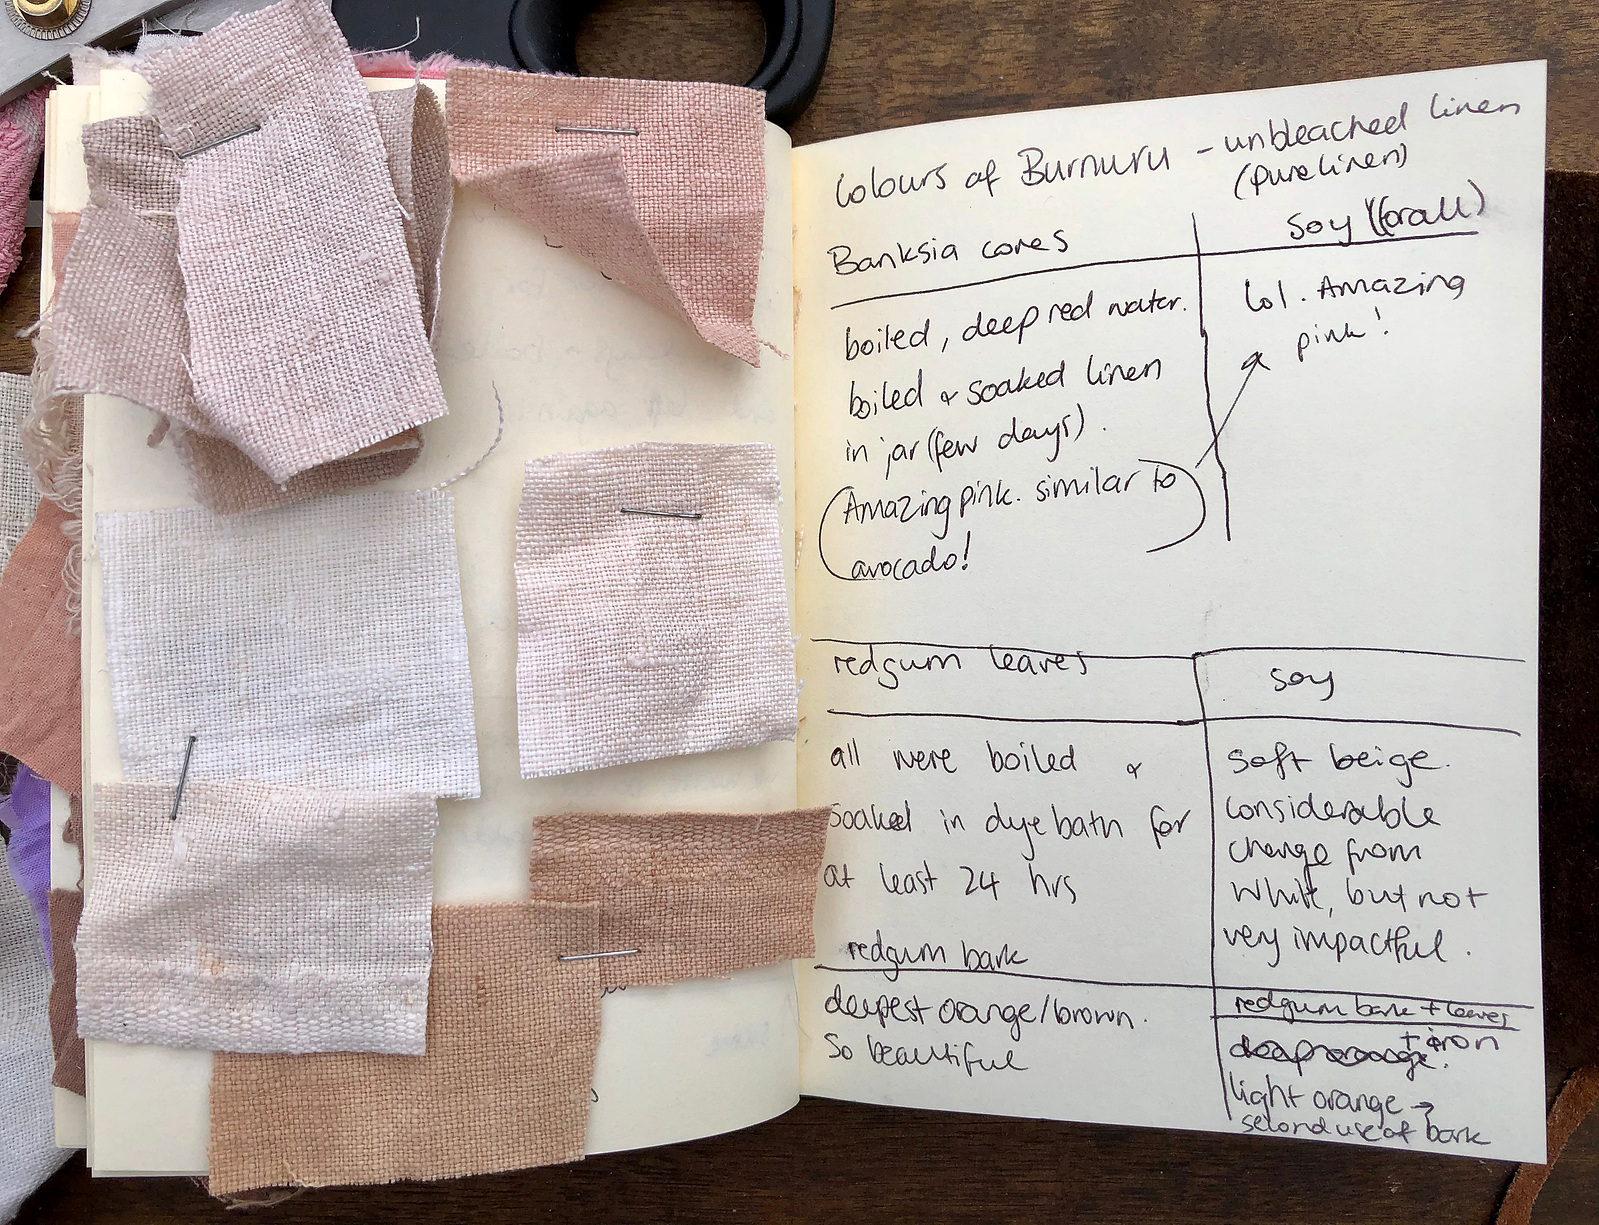 Colours of Burnuru - unbleached linen
(pure linen)
Banksia cones
soy (for all)
boiled, deep red water.
boiled & soaked linen
in jar (few days).
Amazing pink. similar to
avocado!
lol. Amazing
pink!
redgum leaves
soy
all were boiled &
soaked in dye bath for
at least 24 hrs
soft beige.
considerable
change from
white, but not
very impactful.
redgum bark
deepest orange/brown.
So beautiful
redgum bark + leaves
+ iron
deep orange.
light orange →
second use of bark